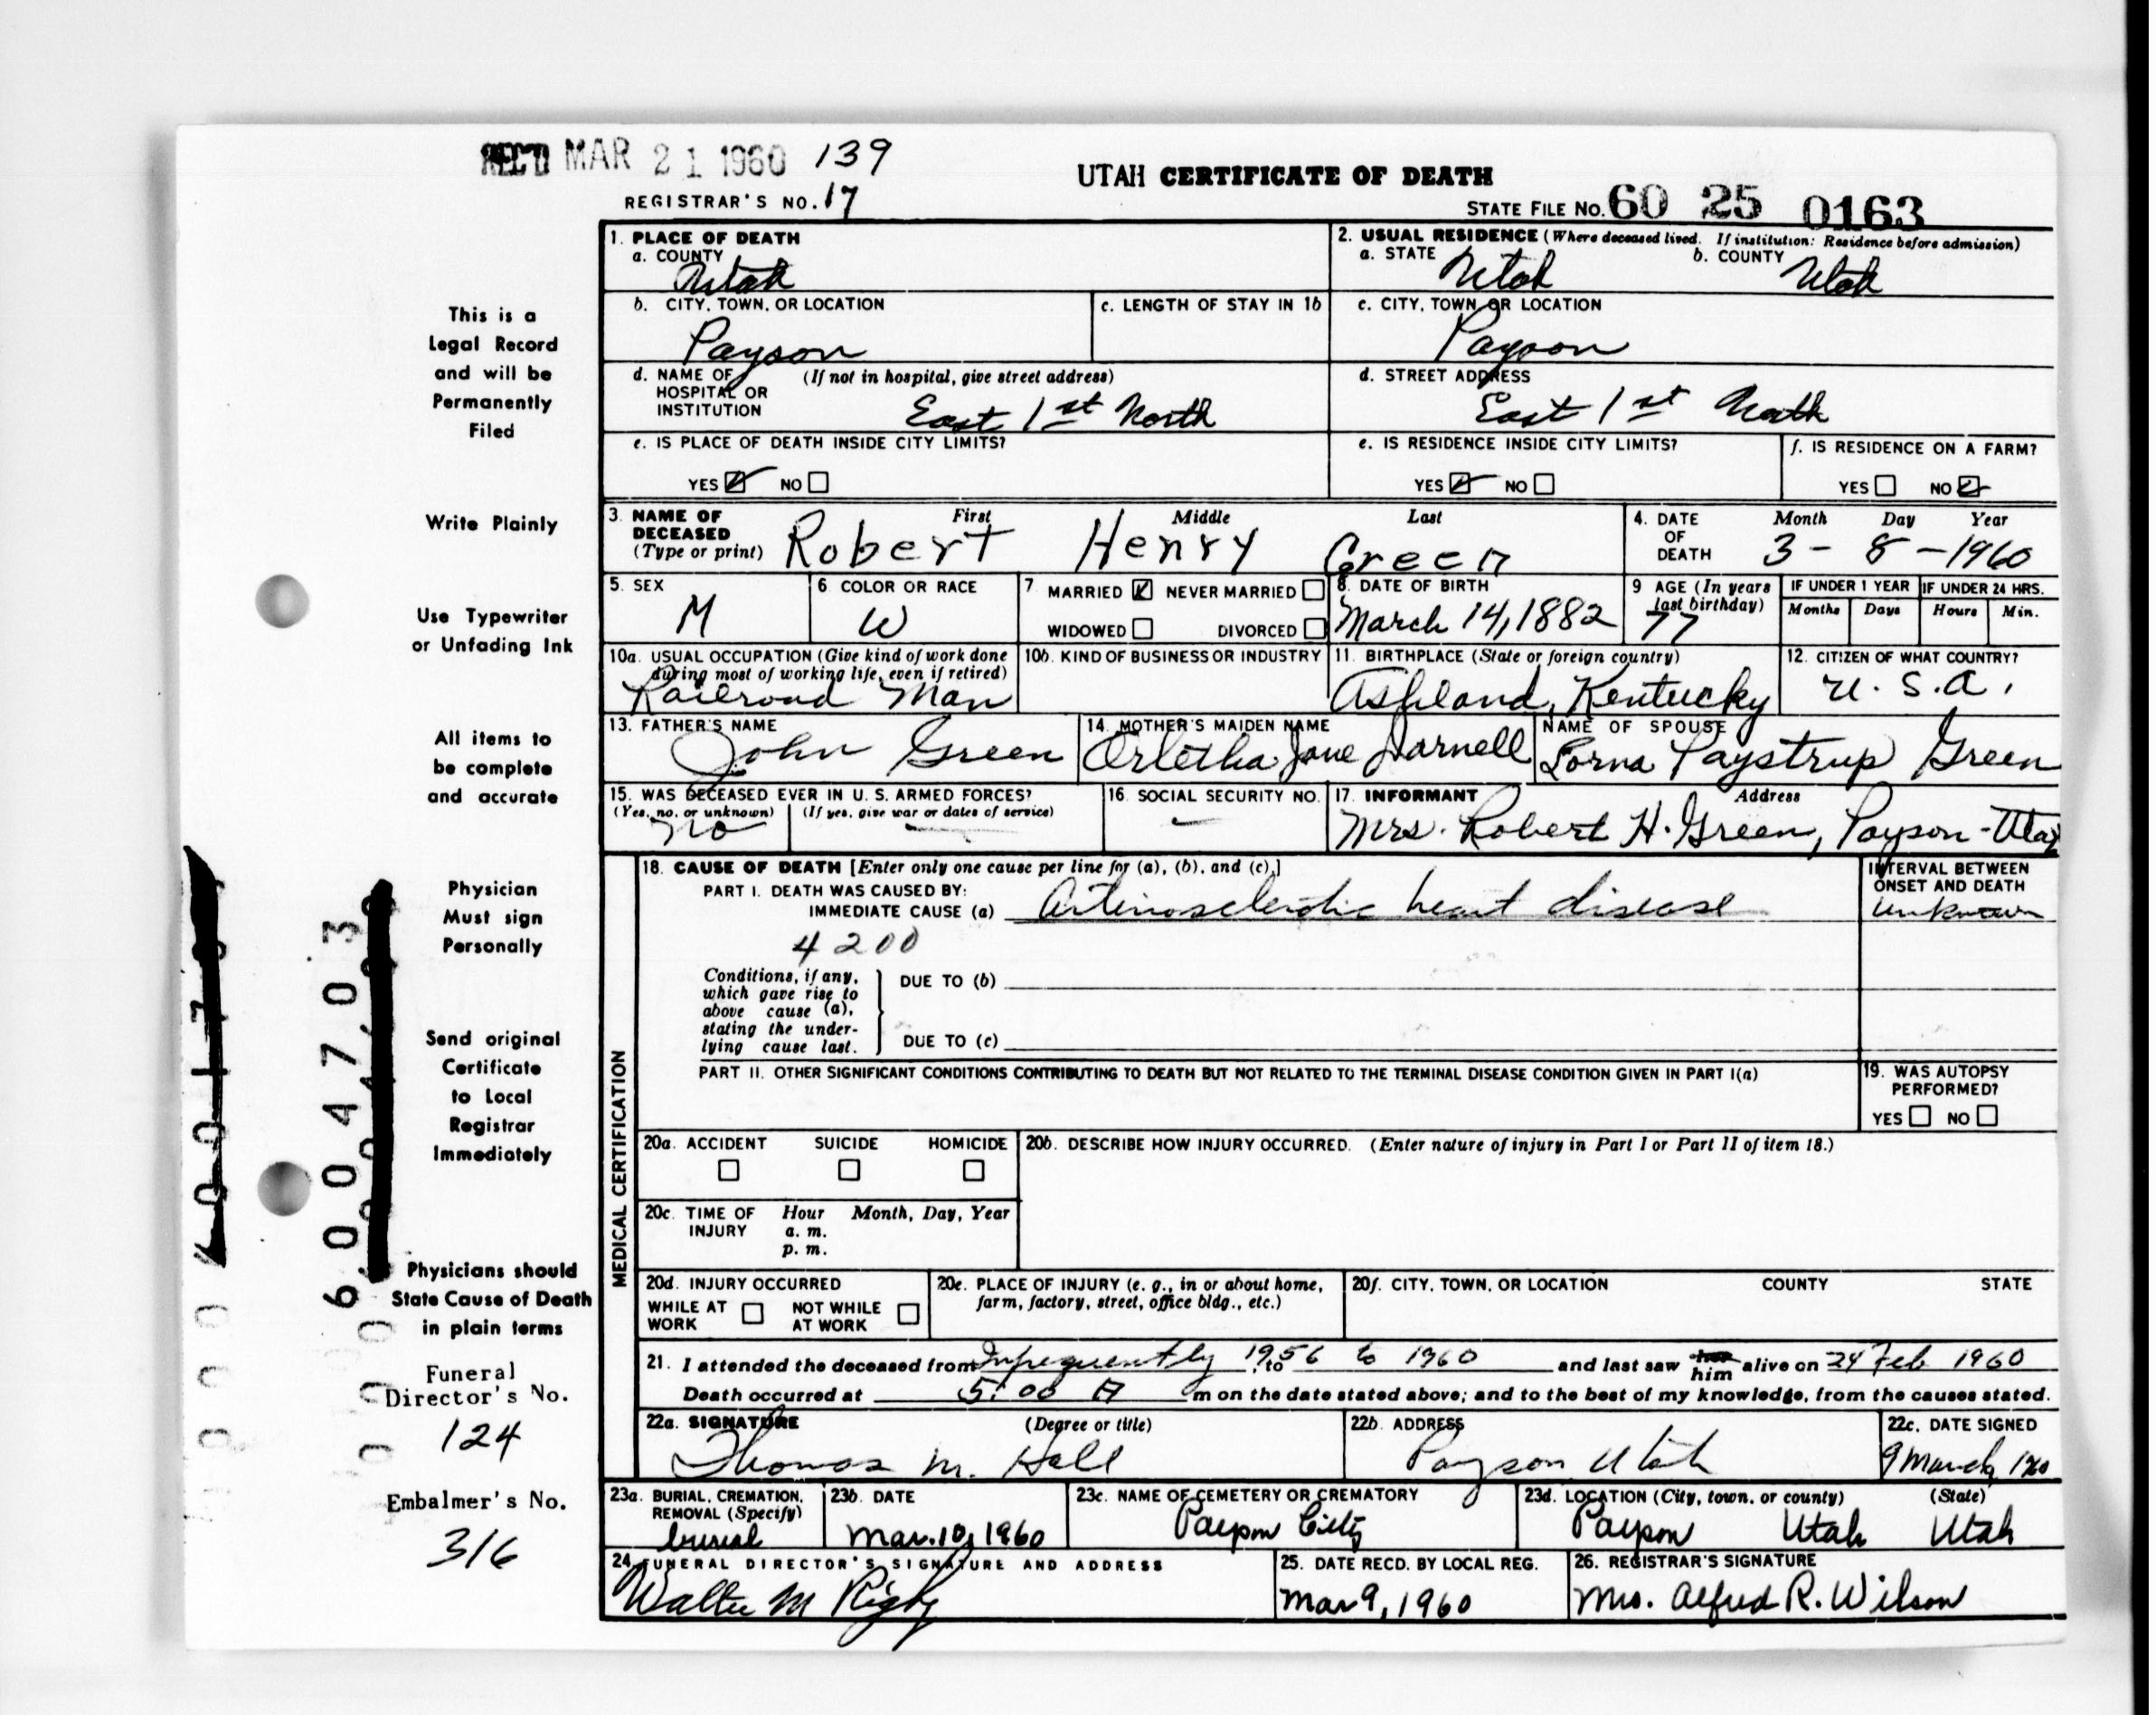 REC'D MAR 21 1960 139
UTAH CERTIFICATE OF DEATH
REGISTRAR'S NO. 17
STATE FILE NO. 60 25 0163
This is a
Legal Record
and will be
Permanently
Filed
Write Plainly
Use Typewriter
or Unfading Ink
All items to
be complete
and accurate
Physician
Must sign
Personally
Send original
Certificate
to Local
Registrar
Immediately
Physicians should
State Cause of Death
in plain terms
Funeral
Director's No.
124
Embalmer's No.
316
6004703
1. PLACE OF DEATH
a. COUNTY
Utah
2. USUAL RESIDENCE (Where deceased lived. If institution: Residence before admission)
a. STATE Utah b. COUNTY Utah
b. CITY, TOWN, OR LOCATION
Payson
c. LENGTH OF STAY IN 1b
c. CITY, TOWN OR LOCATION
Payson
d. NAME OF (If not in hospital, give street address)
HOSPITAL OR
INSTITUTION East 1st North
d. STREET ADDRESS
East 1st North
e. IS PLACE OF DEATH INSIDE CITY LIMITS?
YES NO
e. IS RESIDENCE INSIDE CITY LIMITS?
YES NO
f. IS RESIDENCE ON A FARM?
YES NO
3. NAME OF DECEASED (Type or print)
First Middle Last
Robert Henry Green
4. DATE OF DEATH
Month Day Year
3 - 8 - 1960
5. SEX
M
6 COLOR OR RACE
W
7 MARRIED NEVER MARRIED
WIDOWED DIVORCED
8. DATE OF BIRTH
March 14, 1882
9 AGE (In years last birthday)
77
IF UNDER 1 YEAR IF UNDER 24 HRS.
Months Days Hours Min.
10a. USUAL OCCUPATION (Give kind of work done
during most of working life, even if retired)
Railroad Man
10b. KIND OF BUSINESS OR INDUSTRY
11. BIRTHPLACE (State or foreign country)
Ashland, Kentucky
12. CITIZEN OF WHAT COUNTRY?
U.S.A.
13. FATHER'S NAME
John Green
14. MOTHER'S MAIDEN NAME
Orletha Jane Darnell
NAME OF SPOUSE
Lorna Paystrup Green
15. WAS DECEASED EVER IN U. S. ARMED FORCES?
(Yes, no, or unknown) (If yes, give war or dates of service)
no —
16. SOCIAL SECURITY NO.
—
17. INFORMANT Address
Mrs. Robert H. Green, Payson - Utah
MEDICAL CERTIFICATION
18. CAUSE OF DEATH [Enter only one cause per line for (a), (b), and (c).]
INTERVAL BETWEEN
ONSET AND DEATH
unknown
PART I. DEATH WAS CAUSED BY:
IMMEDIATE CAUSE (a) Arteriosclerotic heart disease
4200
Conditions, if any,
which gave rise to
above cause (a),
stating the under-
lying cause last.
DUE TO (b)
DUE TO (c)
PART II. OTHER SIGNIFICANT CONDITIONS CONTRIBUTING TO DEATH BUT NOT RELATED TO THE TERMINAL DISEASE CONDITION GIVEN IN PART I(a)
19. WAS AUTOPSY
PERFORMED?
YES NO
20a. ACCIDENT SUICIDE HOMICIDE
20b. DESCRIBE HOW INJURY OCCURRED. (Enter nature of injury in Part I or Part II of item 18.)
20c. TIME OF INJURY Hour Month, Day, Year
a. m.
p. m.
20d. INJURY OCCURRED
WHILE AT WORK NOT WHILE AT WORK
20e. PLACE OF INJURY (e. g., in or about home,
farm, factory, street, office bldg., etc.)
20f. CITY, TOWN, OR LOCATION COUNTY STATE
21. I attended the deceased from Infrequently 1956 to to 1960 and last saw her him alive on 24 Feb 1960
Death occurred at 5:00 A m on the date stated above; and to the best of my knowledge, from the causes stated.
22a. SIGNATURE (Degree or title)
Thomas M. Hall
22b. ADDRESS
Payson Utah
22c. DATE SIGNED
9 March 1960
23a. BURIAL, CREMATION,
REMOVAL (Specify)
burial
23b. DATE
Mar. 10, 1960
23c. NAME OF CEMETERY OR CREMATORY
Payson City
23d. LOCATION (City, town, or county) (State)
Payson Utah Utah
24. FUNERAL DIRECTOR'S SIGNATURE AND ADDRESS
Walter M Rigby
25. DATE RECD. BY LOCAL REG.
Mar 9, 1960
26. REGISTRAR'S SIGNATURE
Mrs. Alfred R. Wilson